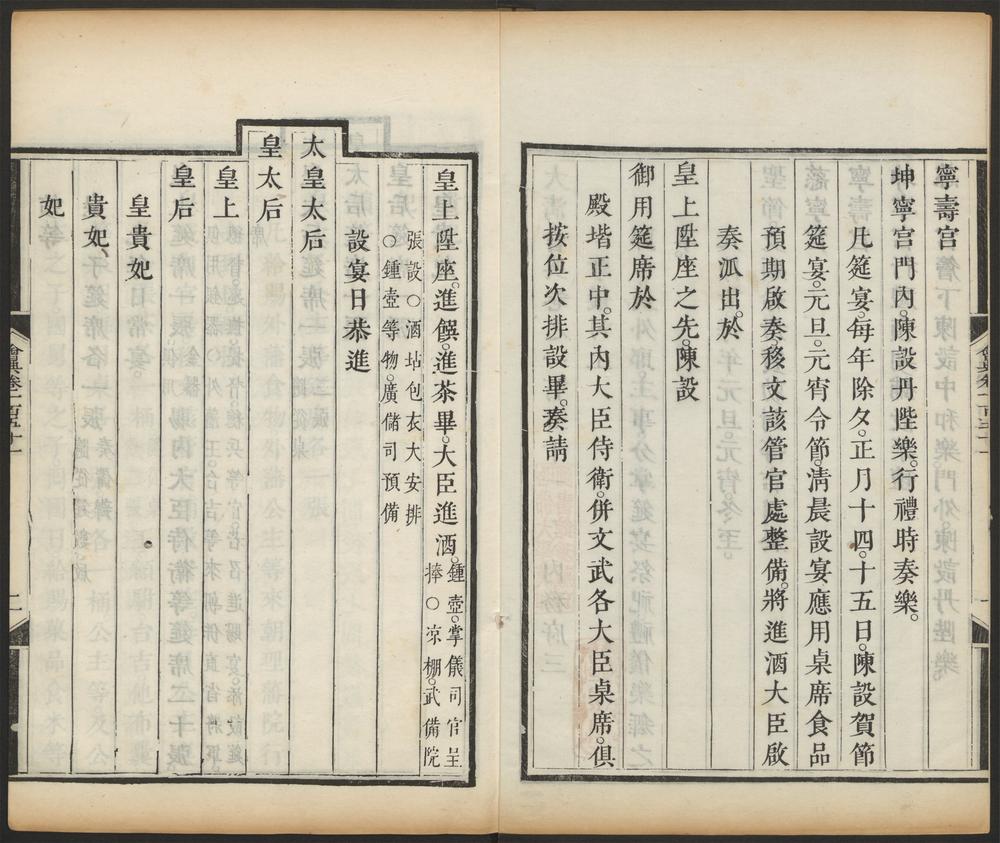 寧壽宮
坤寧宮門內。陳設丹陛樂。行禮時奏樂。
凡筵宴。每年除夕。正月十四。十五日。陳設賀節
筵宴。元旦。元宵令節。清晨設宴應用桌席食品
預期啟奏。移文該管官處整備。將進酒大臣啟
奏派出。於
皇上陞座之先。陳設
御用筵席於
殿堦正中。其內大臣侍衛。併文武各大臣桌席。俱
按位次排設畢。奏請
皇上陞座。進饌。進茶畢。大臣進酒。鍾壺。掌儀司官呈
捧○凉棚。武備院
張設○酒坫包衣大安排
○鍾壺等物。廣儲司預備
設宴日恭進
太皇太后
皇太后
皇上
皇后
皇貴妃
貴妃
妃
會典卷一百五十一
二